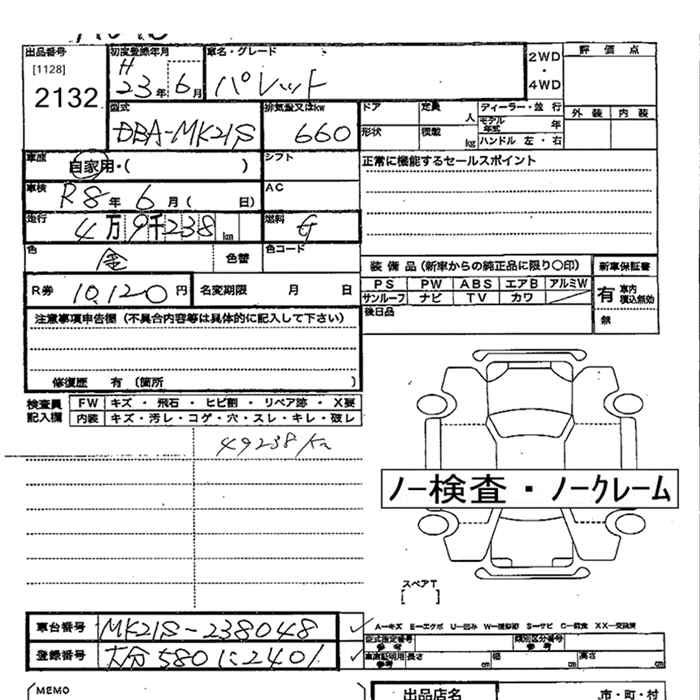 出品番号 初度登録年月 車名・グレード 2WD・4WD 評価点
[1128] H
2132 23年 6月 パレット
外装 内装
型式 排気量又はkw ドア 定員 人 ディーラー・並行
DBA-MK21S 660 モデル年式 年
形状 積載 kg ハンドル 左・右
車歴 自家用・( ) シフト 正常に機能するセールスポイント
車検 R8年 6月( 日) AC
走行 4万9千238km 燃料 G
色 金 色替 色コード
装備品(新車からの純正品に限り○印) 新車保証書
R券 10,120円 名変期限 月 日
PS PW ABS エアB アルミW 有 車内積込無効
サンルーフ ナビ TV カワ
後日品 無
注意事項申告欄(不具合内容等は具体的に記入して下さい)
修復歴 有(箇所 )
検査員記入欄 FW キズ・飛石・ヒビ割・リペア跡・X要
内装 キズ・汚レ・コゲ・穴・スレ・キレ・破レ
49238Km
ノー検査・ノークレーム
スペアT
[ ]
A−キズ E−エクボ U−凹み W−補修跡 S−サビ C−腐食 XX−交換済
車台番号 MK21S-238048
型式指定番号 参考 類別区分番号 参考
登録番号 大分580に2401
車庫証明用参考 長さ cm 幅 cm 高さ cm
MEMO 出品店名 市・町・村